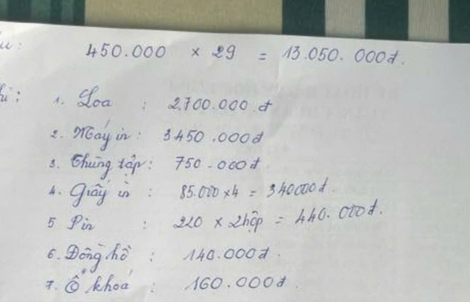 u:
450.000 × 29 = 13.050.000đ.
hi:
1. Loa : 2.700.000.đ
2. Máy in : 3450.000đ
3. Thùng tập : 750.000đ
4. Giấy in : 85.000×4 = 340000đ.
5 Pin : 220 × 2hộp = 440.000đ.
6. Đồng hồ : 140.000đ.
7. Ổ khoá : 160.000đ.